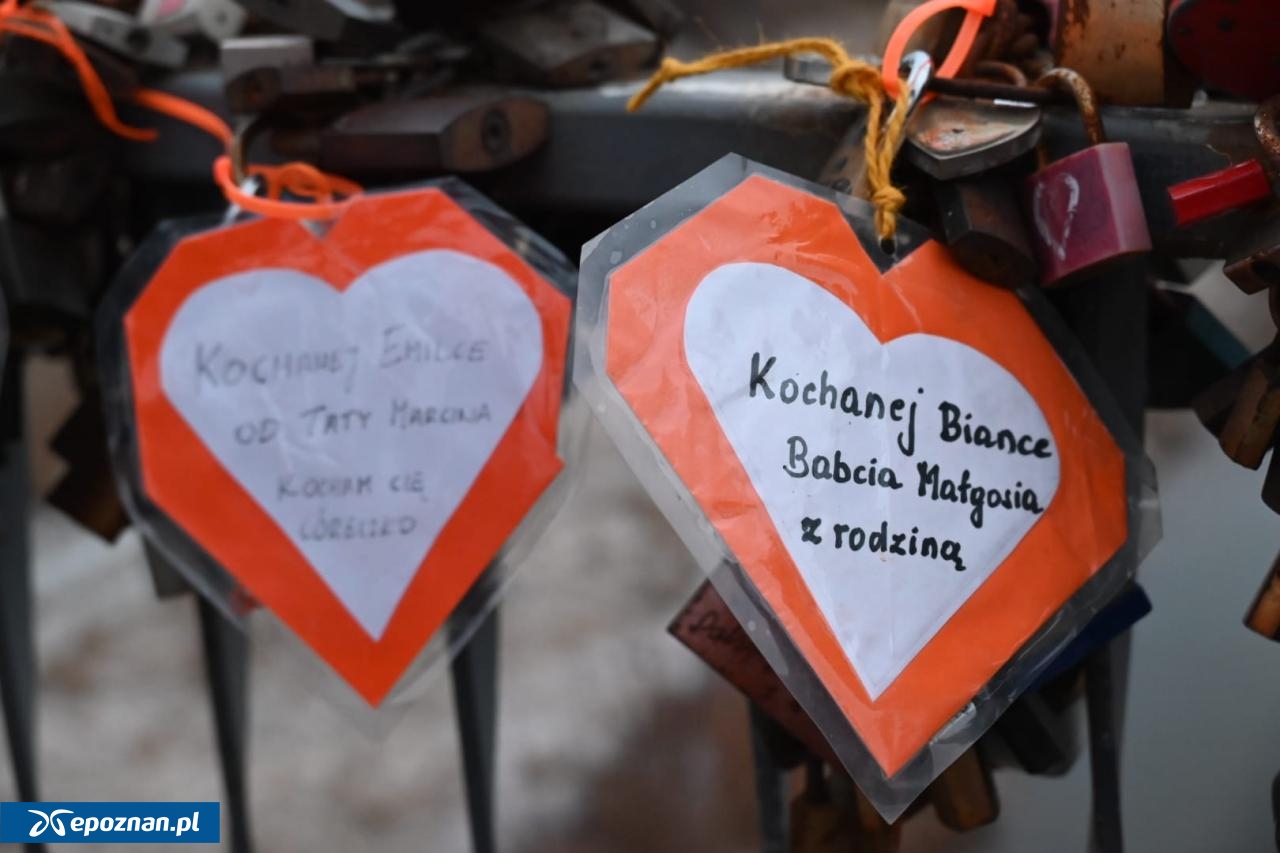 KOCHANEJ EMILCE
OD TATY MARCINA
KOCHAM CIĘ
CÓRECZKO
Kochanej Biance
Babcia Małgosia
z rodziną
epoznan.pl